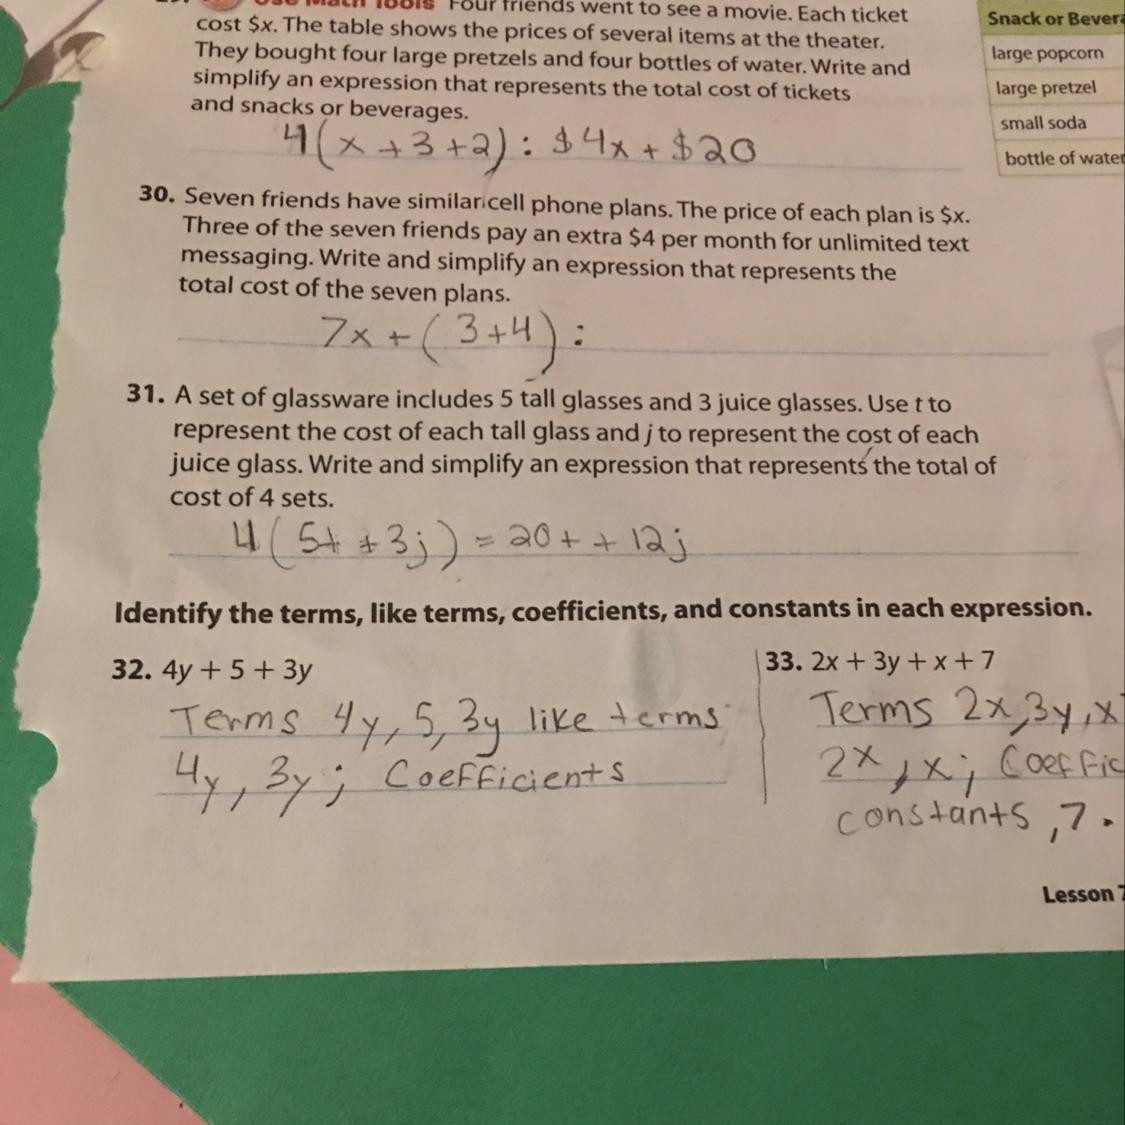 Use Math Tools Four friends went to see a movie. Each ticket
cost $x. The table shows the prices of several items at the theater.
They bought four large pretzels and four bottles of water. Write and
simplify an expression that represents the total cost of tickets
and snacks or beverages.
4(x+3+2): $4x + $20
Snack or Bevera
large popcorn
large pretzel
small soda
bottle of water
30. Seven friends have similar cell phone plans. The price of each plan is $x.
Three of the seven friends pay an extra $4 per month for unlimited text
messaging. Write and simplify an expression that represents the
total cost of the seven plans.
7x + (3+4):
31. A set of glassware includes 5 tall glasses and 3 juice glasses. Use t to
represent the cost of each tall glass and j to represent the cost of each
juice glass. Write and simplify an expression that represents the total of
cost of 4 sets.
4(5t + 3j) = 20t + 12j
Identify the terms, like terms, coefficients, and constants in each expression.
32. 4y + 5 + 3y
Terms 4y, 5, 3y like terms
4y, 3y; Coefficients
33. 2x + 3y + x + 7
Terms 2x, 3y, x
2x, x; Coeffic
constants, 7.
Lesson 7